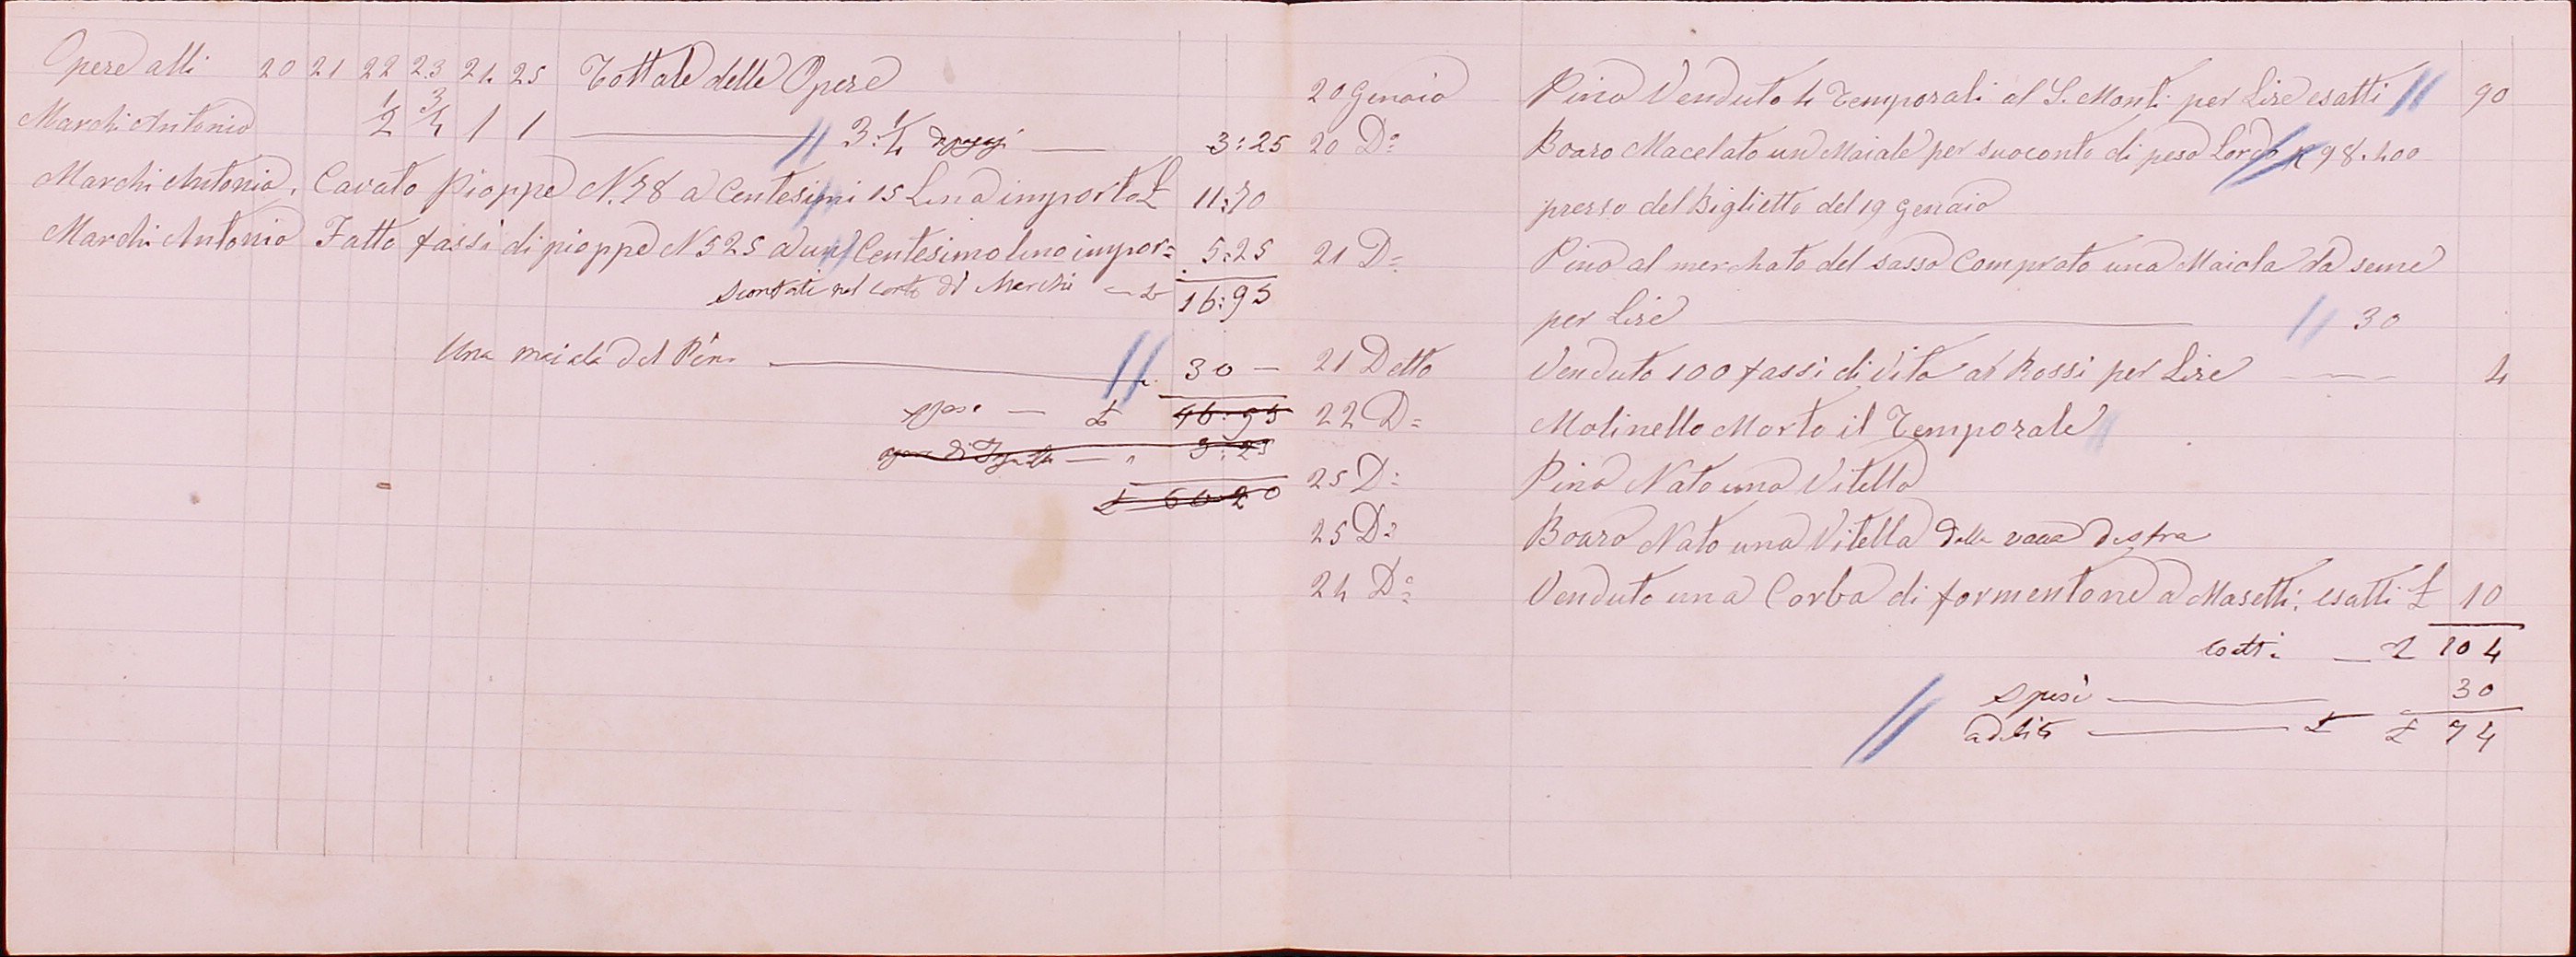 Opere alli 20 21 22 23 24 25 Tottale delle Opere
Marchi Antonio 1/2 3/4 1 1 3:1/4 3:25
Marchi Antonio, Cavato pioppe N. 78 a Centesimi 15 L'una importa £ 11:70
Marchi Antonio Fatto fassi di pioppe N 525 a un Centesimo l'uno impor= 5:25
Scontati nel conto di Marchi — £ 16:95
Una maiala del Pino 30 —
spese — £ 46:95
3:25
£ 60 20
20 Genaio Pino Venduto 4 Temporali al S. Monti per Lire esatti 90
20 D: Boaro Macelato un Maiale per suo conto di peso Lordo K 98.400
presso del Biglietto del 19 Genaio
21 D= Pino al merchato del sasso Comprato una Maiala da seme
per Lire 30
21 Detto Venduto 100 fassi di vito a Rossi per Lire 4
22 D= Molinello Morto il Temporale
25 D: Pino Nato una Vitella
25 D: Boaro Nato una Vitella dalla vacca destra
24 D: Venduto una Corba di formentone a Masetti: esatti £ 10
£ 104
spesi 30
£ £ 74